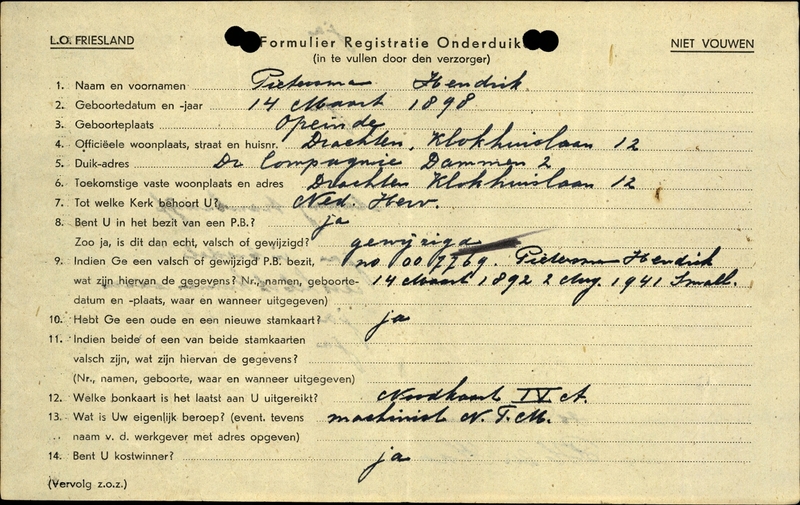 L.O. FRIESLAND
Formulier Registratie Onderduik
NIET VOUWEN
(in te vullen door den verzorger)
1. Naam en voornamen Pietersma Hendrik
2. Geboortedatum en -jaar 14 Maart 1898
3. Geboorteplaats Opeinde
4. Officiëele woonplaats, straat en huisnr. Drachten, Klokhuislaan 12
5. Duik-adres Dr. Compagnie Dammen 2
6. Toekomstige vaste woonplaats en adres Drachten Klokhuislaan 12
7. Tot welke Kerk behoort U? Ned. Herv.
8. Bent U in het bezit van een P.B.? ja
Zoo ja, is dit dan echt, valsch of gewijzigd? gewijzigd
9. Indien Ge een valsch of gewijzigd P.B. bezit, no 007769. Pietersma Hendrik
wat zijn hiervan de gegevens? Nr., namen, geboorte- 14 Maart 1892 2 Aug. 1941 Small.
datum en -plaats, waar en wanneer uitgegeven)
10. Hebt Ge een oude en een nieuwe stamkaart? ja
11. Indien beide of een van beide stamkaarten
valsch zijn, wat zijn hiervan de gegevens?
(Nr., namen, geboorte, waar en wanneer uitgegeven)
12. Welke bonkaart is het laatst aan U uitgereikt? Noodkaart IV A.
13. Wat is Uw eigenlijk beroep? (event. tevens machinist N.T.M.
naam v. d. werkgever met adres opgeven)
14. Bent U kostwinner? ja
(Vervolg z.o.z.)